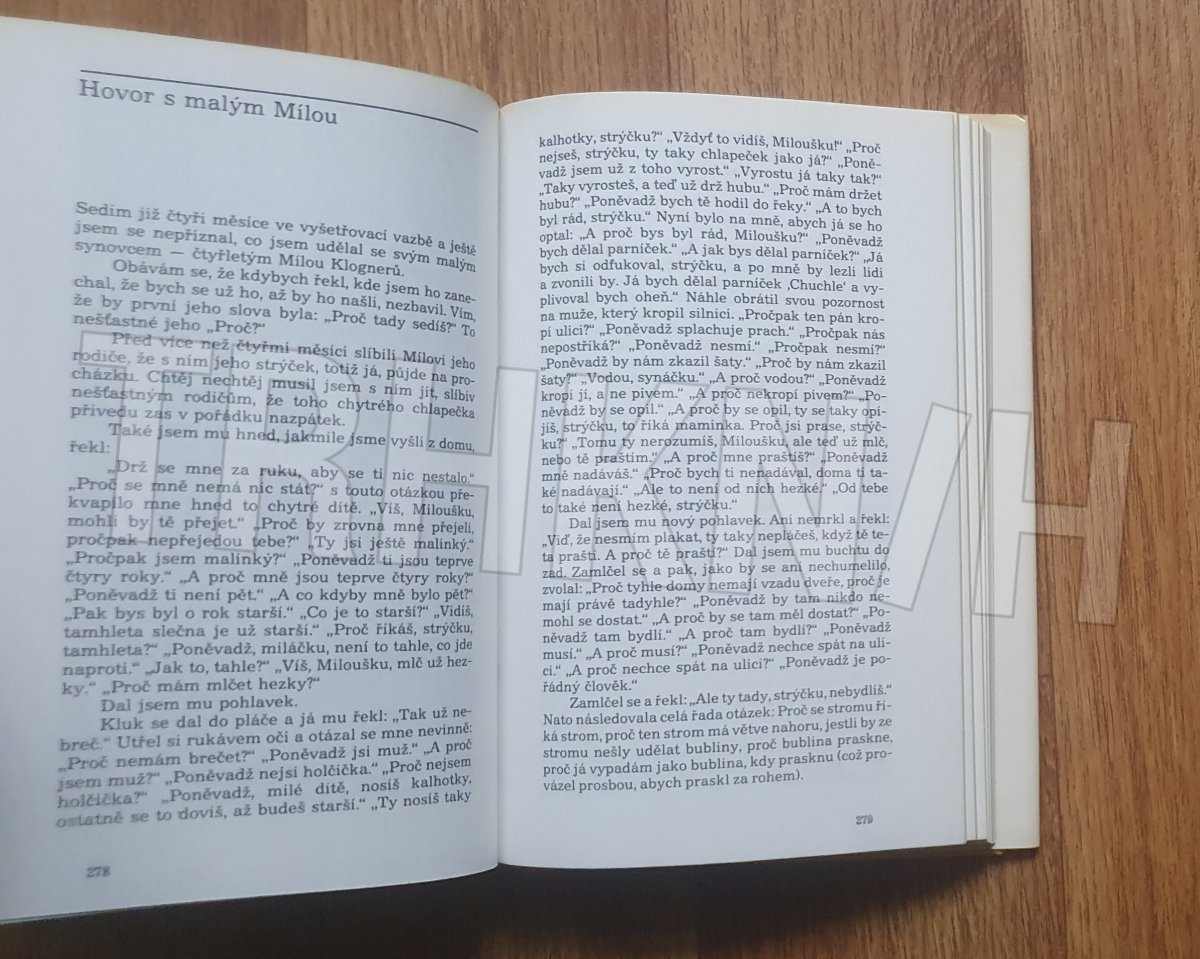 Hovor s malým Mílou
Sedím již čtyři měsíce ve vyšetřovací vazbě a ještě
jsem se nepřiznal, co jsem udělal se svým malým
synovcem — čtyřletým Mílou Klognerů.
Obávám se, že kdybych řekl, kde jsem ho zane-
chal, že bych se už ho, až by ho našli, nezbavil. Vím,
že by první jeho slova byla: „Proč tady sedíš?“ To
nešťastné jeho „Proč?“
Před více než čtyřmi měsíci slíbili Mílovi jeho
rodiče, že s ním jeho strýček, totiž já, půjde na pro-
cházku. Chtěj nechtěj musil jsem s ním jít, slíbiv
nešťastným rodičům, že toho chytrého chlapečka
přivedu zas v pořádku nazpátek.
Také jsem mu hned, jakmile jsme vyšli z domu,
řekl:
„Drž se mne za ruku, aby se ti nic nestalo.“
„Proč se mně nemá nic stát?“ s touto otázkou pře-
kvapilo mne hned to chytré dítě. „Víš, Miloušku,
mohli by tě přejet.“ „Proč by zrovna mne přejeli,
pročpak nepřejedou tebe?“ „Ty jsi ještě malinký.“
„Pročpak jsem malinký?“ „Poněvadž ti jsou teprve
čtyry roky.“ „A proč mně jsou teprve čtyry roky?“
„Poněvadž ti není pět.“ „A co kdyby mně bylo pět?“
„Pak bys byl o rok starší.“ „Co je to starší?“ „Vidíš,
tamhleta slečna je už starší.“ „Proč říkáš, strýčku,
tamhleta?“ „Poněvadž, miláčku, není to tahle, co jde
naproti.“ „Jak to, tahle?“ „Víš, Miloušku, mlč už hez-
ky.“ „Proč mám mlčet hezky?“
Dal jsem mu pohlavek.
Kluk se dal do pláče a já mu řekl: „Tak už ne-
breč.“ Utřel si rukávem oči a otázal se mne nevinně:
„Proč nemám brečet?“ „Poněvadž jsi muž.“ „A proč
jsem muž?“ „Poněvadž nejsi holčička.“ „Proč nejsem
holčička?“ „Poněvadž, milé dítě, nosíš kalhotky,
ostatně se to dovíš, až budeš starší.“ „Ty nosíš taky
278
kalhotky, strýčku?“ „Vždyť to vidíš, Miloušku!“ „Proč
nejseš, strýčku, ty taky chlapeček jako já?“ „Poně-
vadž jsem už z toho vyrost.“ „Vyrostu já taky tak?“
„Taky vyrosteš, a teď už drž hubu.“ „Proč mám držet
hubu?“ „Poněvadž bych tě hodil do řeky.“ „A to bych
byl rád, strýčku.“ Nyní bylo na mně, abych já se ho
optal: „A proč bys byl rád, Miloušku?“ „Poněvadž
bych dělal parníček.“ „A jak bys dělal parníček?“ „Já
bych si odfukoval, strýčku, a po mně by lezli lidi
a zvonili by. Já bych dělal parníček ‚Chuchle‘ a vy-
plivoval bych oheň.“ Náhle obrátil svou pozornost
na muže, který kropil silnici. „Pročpak ten pán kro-
pí ulici?“ „Poněvadž splachuje prach.“ „Pročpak nás
nepostříká?“ „Poněvadž nesmí.“ „Pročpak nesmí?“
„Poněvadž by nám zkazil šaty.“ „Proč by nám zkazil
šaty?“ „Vodou, synáčku.“ „A proč vodou?“ „Poněvadž
kropí jí, a ne pivem.“ „A proč nekropí pivem?“ „Po-
něvadž by se opil.“ „A proč by se opil, ty se taky opí-
jíš, strýčku, to říká maminka. Proč jsi prase, strýč-
ku?“ „Tomu ty nerozumíš, Miloušku, ale teď už mlč,
nebo tě praštím.“ „A proč mne praštíš?“ „Poněvadž
mně nadáváš.“ „Proč bych ti nenadával, doma ti ta-
ké nadávají.“ „Ale to není od nich hezké.“ „Od tebe
to také není hezké, strýčku.“
Dal jsem mu nový pohlavek. Ani nemrkl a řekl:
„Viď, že nesmím plakat, ty taky nepláčeš, když tě te-
ta praští. A proč tě praští?“ Dal jsem mu buchtu do
zad. Zamlčel se a pak, jako by se ani nechumelilo,
zvolal: „Proč tyhle domy nemají vzadu dveře, proč je
mají právě tadyhle?“ „Poněvadž by tam nikdo ne-
mohl se dostat.“ „A proč by se tam měl dostat?“ „Po-
něvadž tam bydlí.“ „A proč tam bydlí?“ „Poněvadž
musí.“ „A proč musí?“ „Poněvadž nechce spát na uli-
ci.“ „A proč nechce spát na ulici?“ „Poněvadž je po-
řádný člověk.“
Zamlčel se a řekl: „Ale ty tady, strýčku, nebydlíš.“
Nato následovala celá řada otázek: Proč se stromu ří-
ká strom, proč ten strom má větve nahoru, jestli by ze
stromu nešly udělat bubliny, proč bublina praskne,
proč já vypadám jako bublina, kdy prasknu (což pro-
vázel prosbou, abych praskl za rohem).
279
TRHKNIH